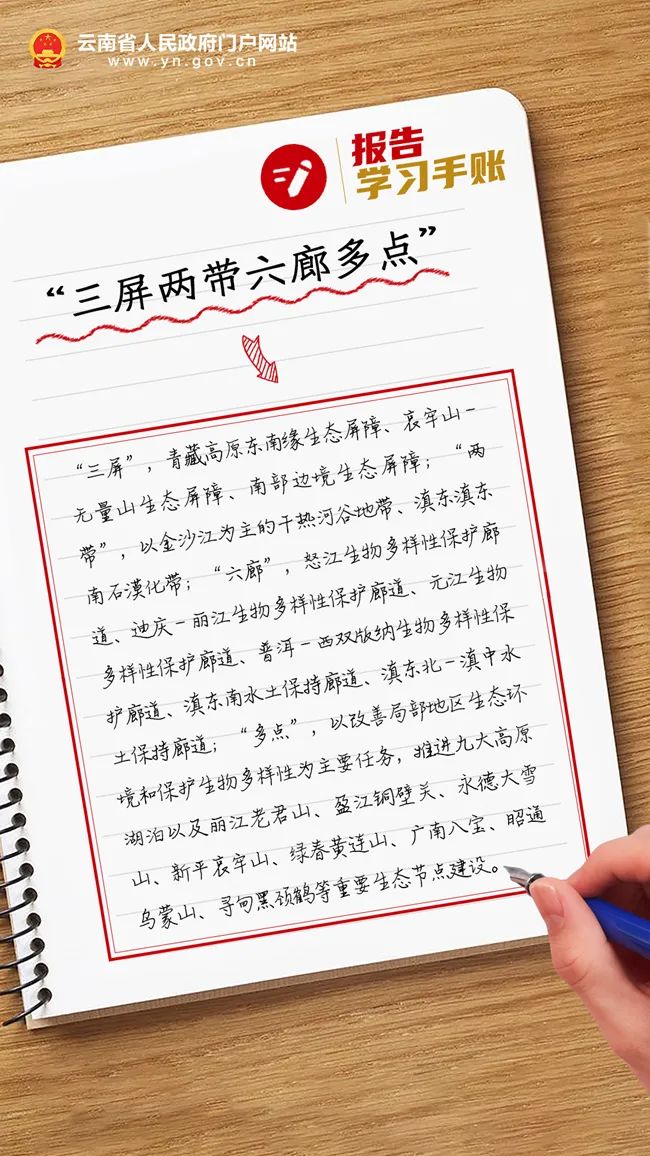 云南省人民政府门户网站
www.yn.gov.cn
报告
学习手账
“三屏两带六廊多点”
“三屏”，青藏高原东南缘生态屏障、哀牢山-
无量山生态屏障、南部边境生态屏障；“两
带”，以金沙江为主的干热河谷地带、滇东滇东
南石漠化带；“六廊”，怒江生物多样性保护廊
道、迪庆-丽江生物多样性保护廊道、元江生物
多样性保护廊道、普洱-西双版纳生物多样性保
护廊道、滇东南水土保持廊道、滇东北-滇中水
土保持廊道；“多点”，以改善局部地区生态环
境和保护生物多样性为主要任务，推进九大高原
湖泊以及丽江老君山、盈江铜壁关、永德大雪
山、新平哀牢山、绿春黄连山、广南八宝、昭通
乌蒙山、寻甸黑颈鹤等重要生态节点建设。